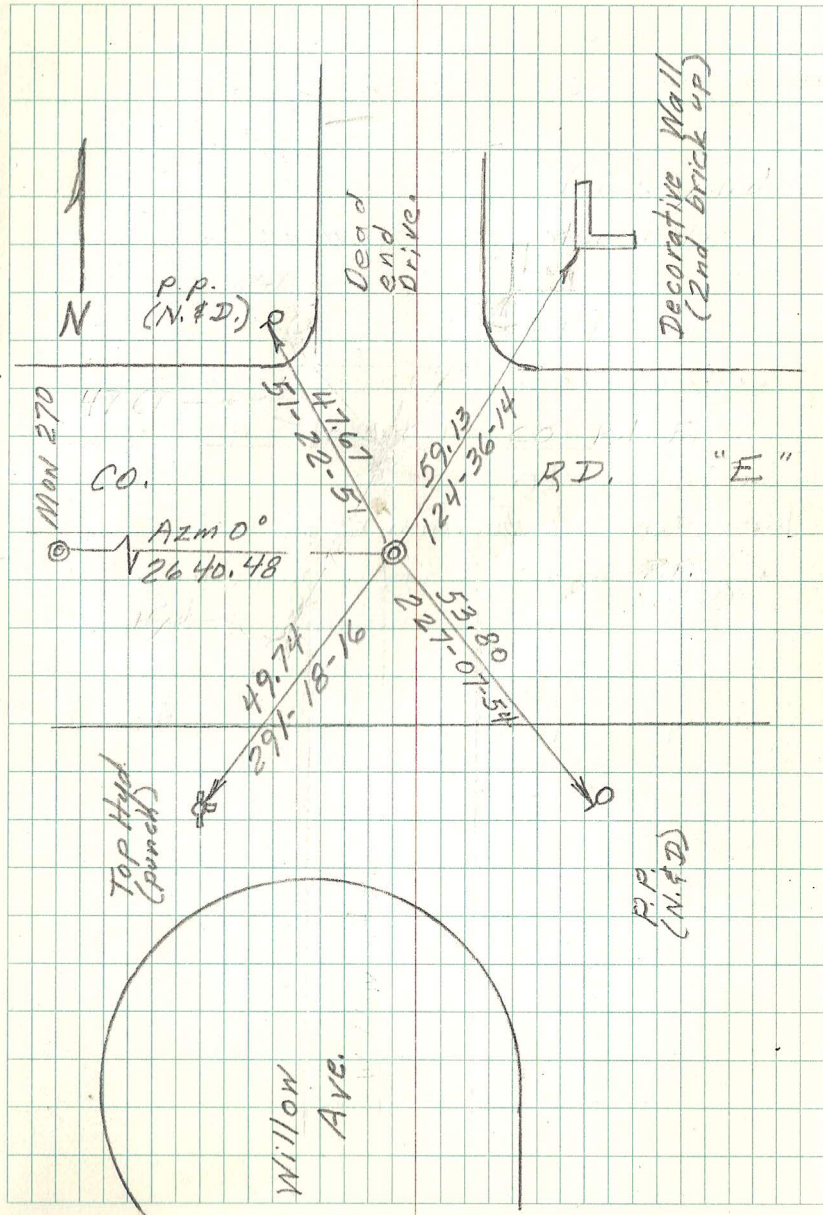 N
P.P.
(N. & D.)
Dead
end
Drive.
Decorative Wall
(2nd brick up)
MON 270
CO.
RD.
"E"
47.67
51-22-51
59.13
124-36-14
Azm 0°
2640.48
49.74
291-18-16
53.80
227-07-54
Top Hyd
(punch)
P.P.
(N. & D)
Willow
Ave.